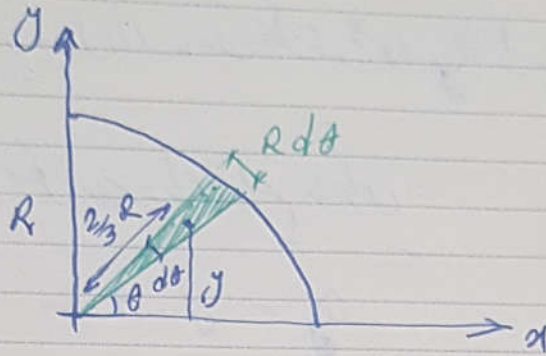 y
R dθ
R
2/3 R
dθ
θ
y
x